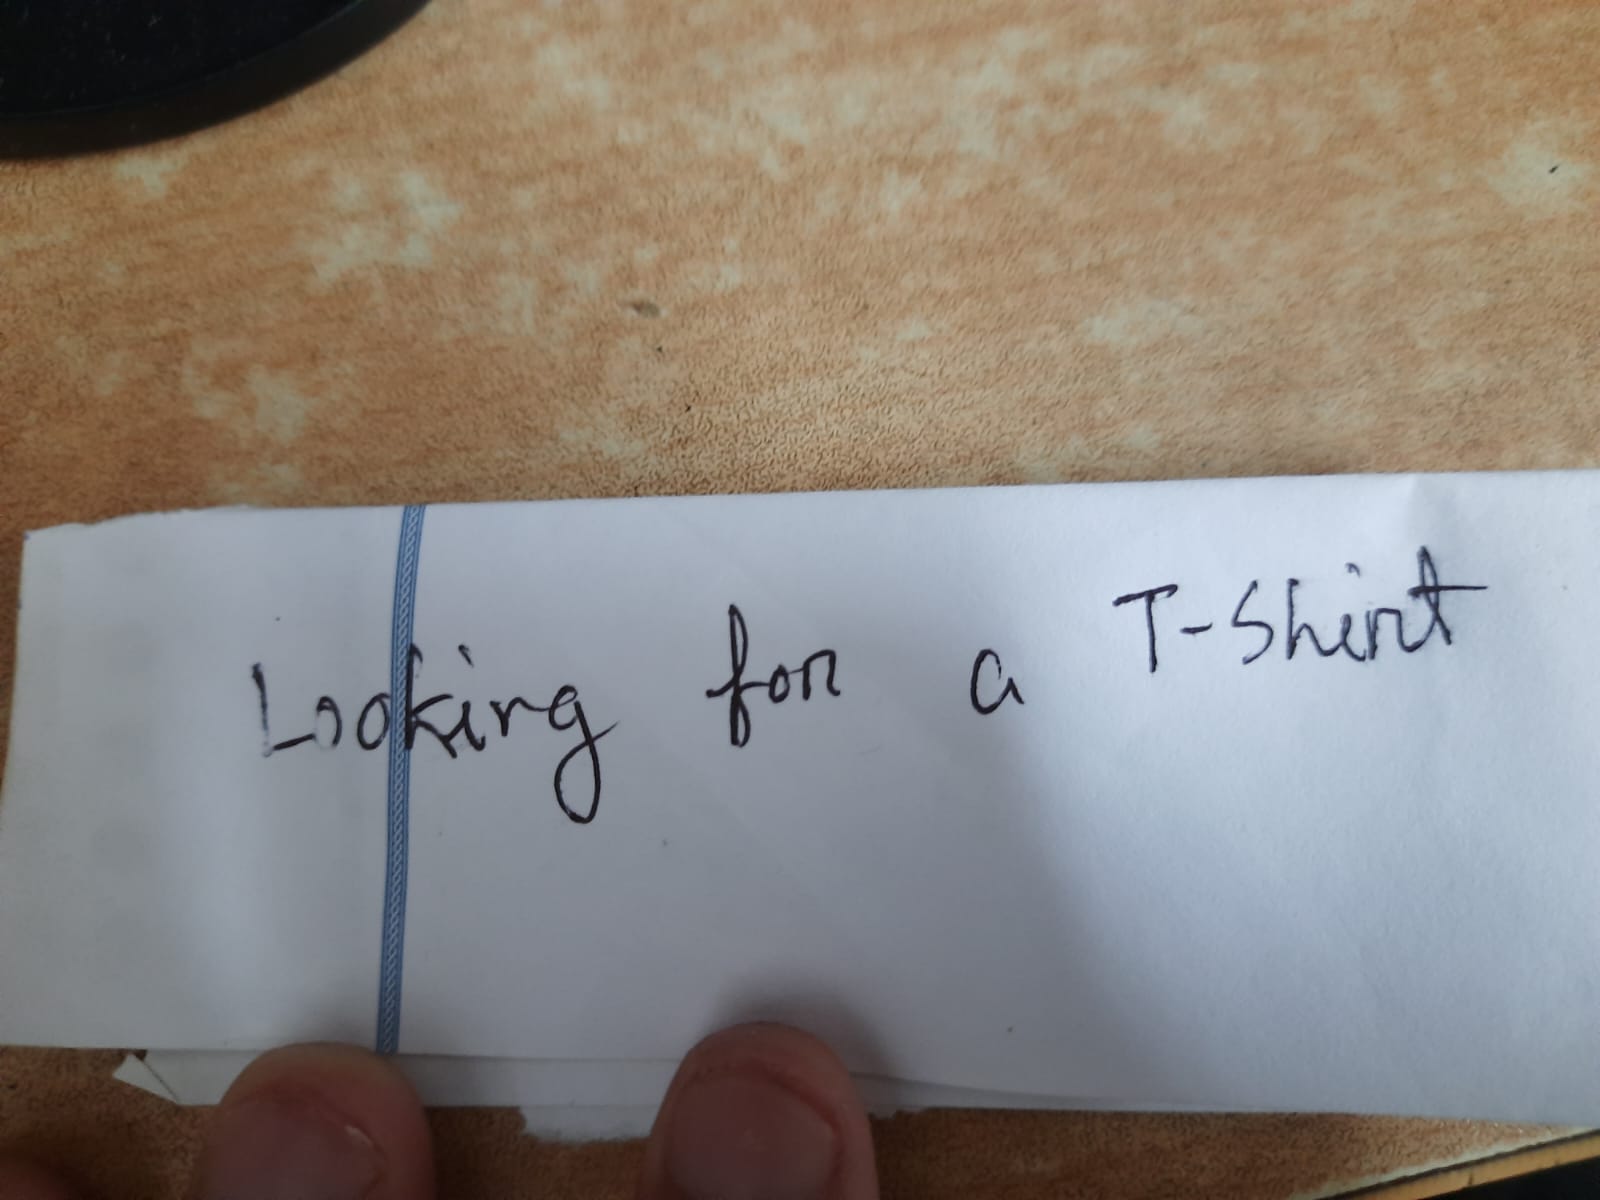 Looking for a T-Shirt